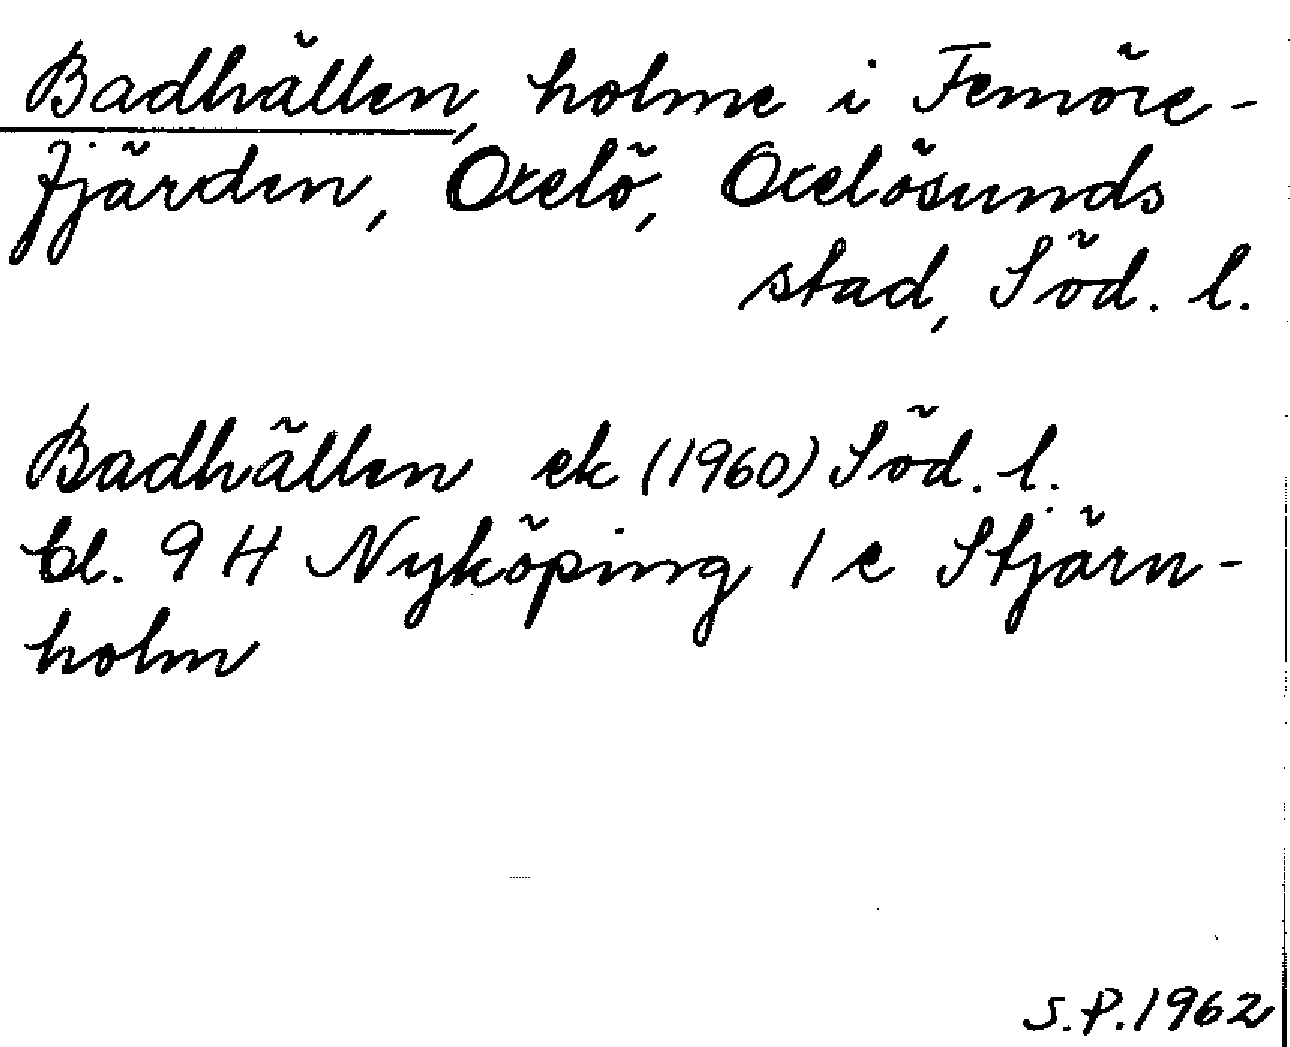 Badhällen, holme i Femöre-
fjärden, Oxelö, Oxelösunds
stad, Söd. l.
Badhällen ek (1960) Söd. l.
bl. 9 H Nyköping 1 e Stjärn-
holm
S.P. 1962